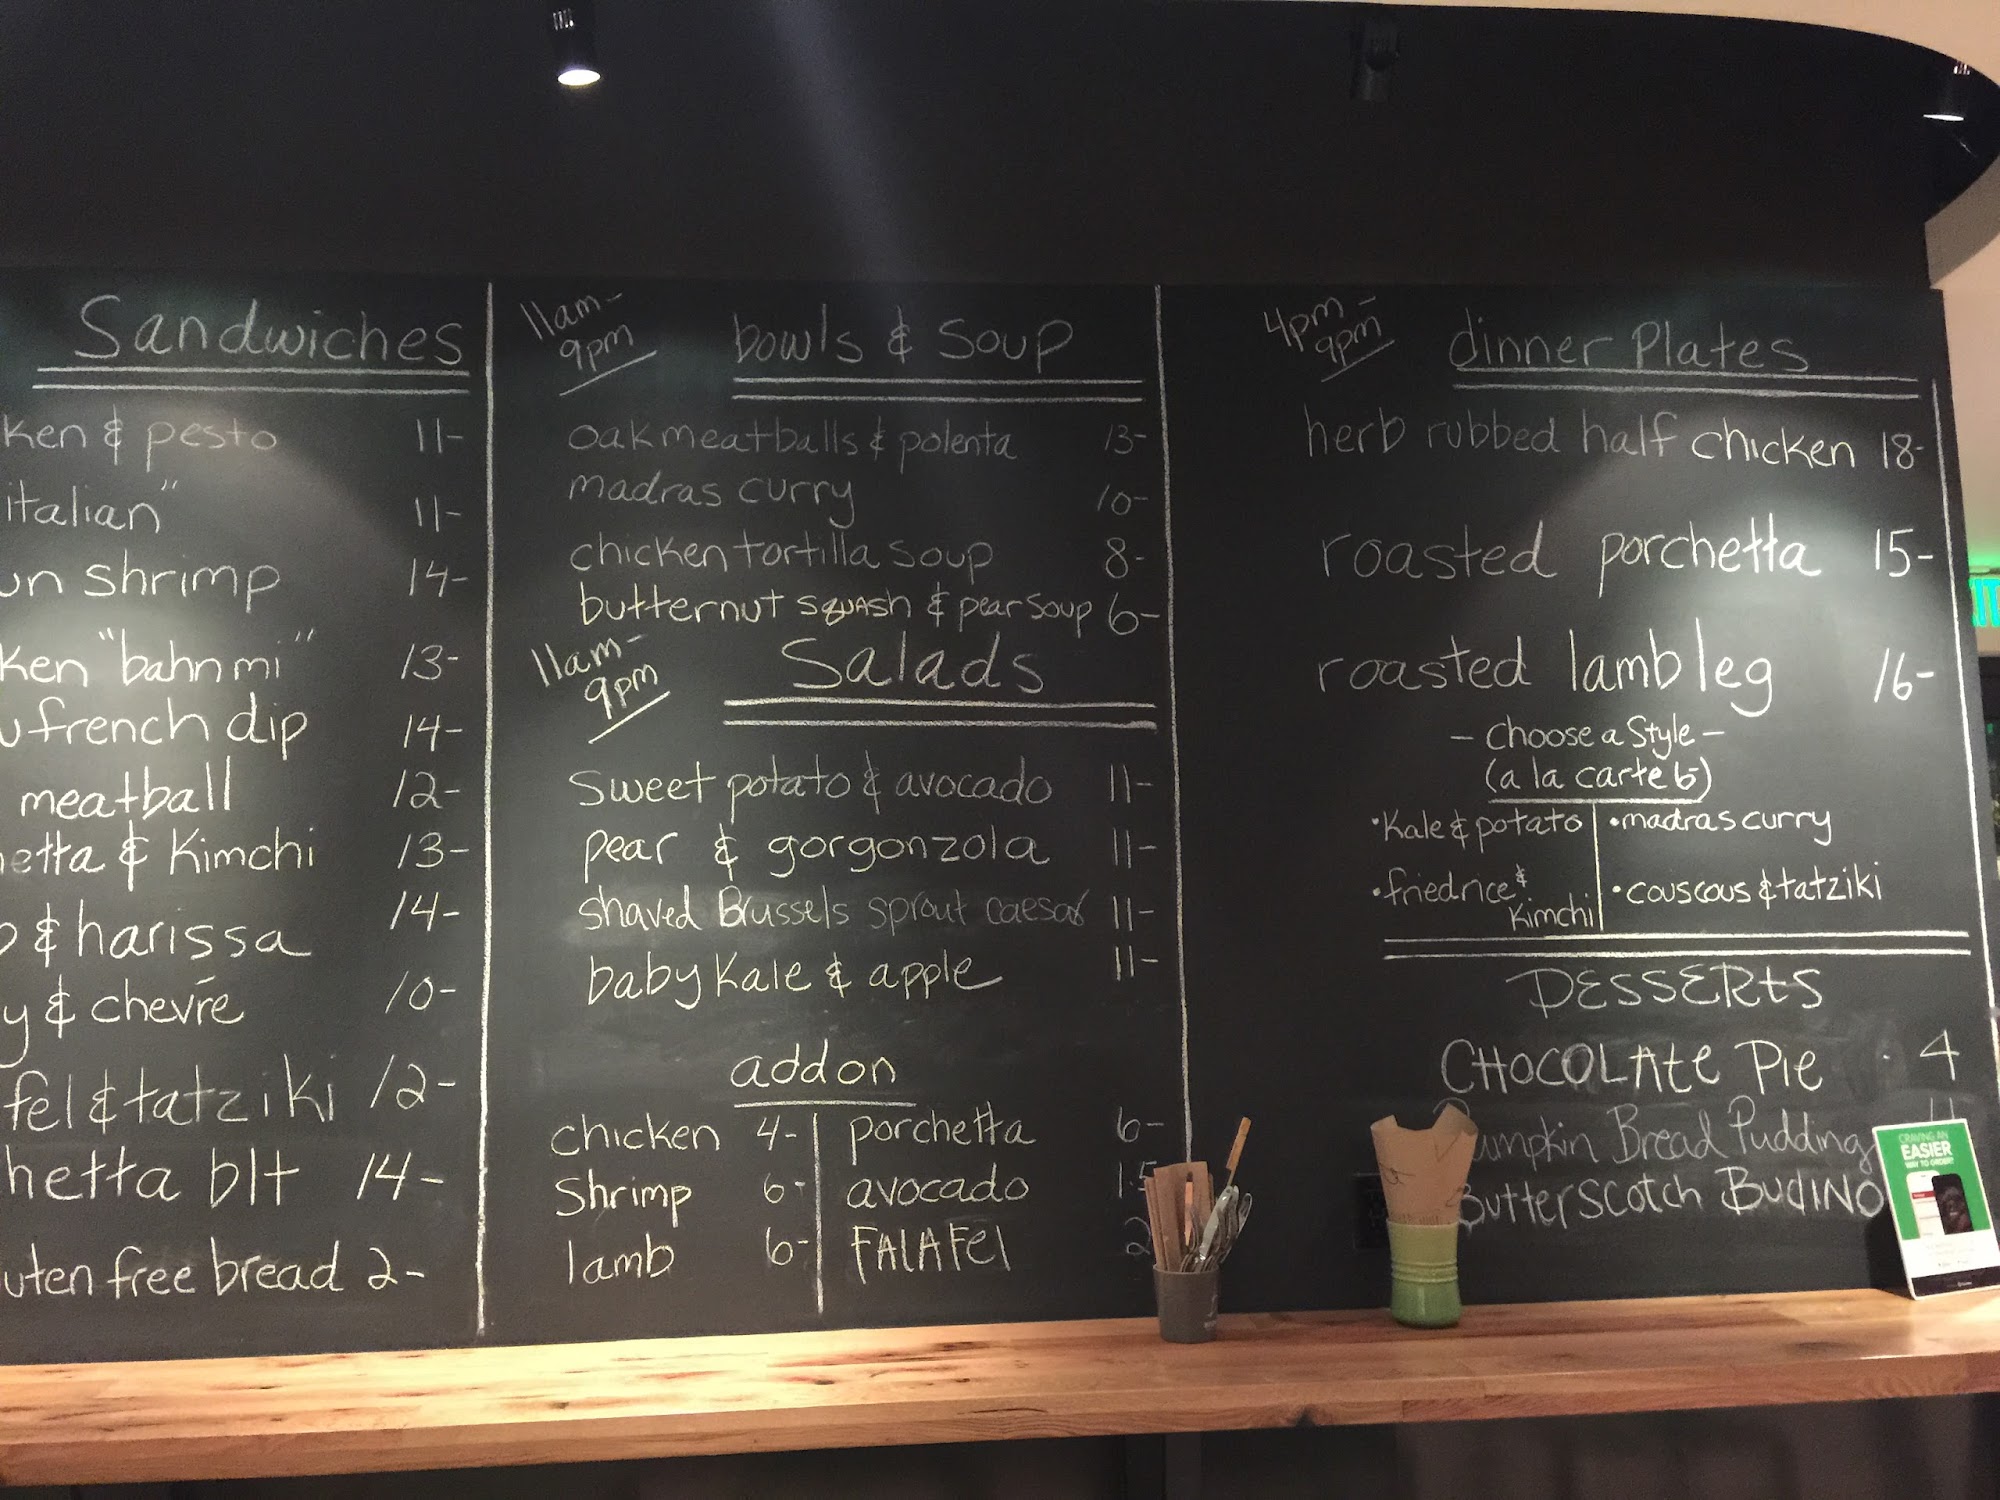 Sandwiches
ken & pesto 11-
italian" 11-
un shrimp 14-
ken "bahn mi" 13-
french dip 14-
meatball 12-
etta & Kimchi 13-
& harissa 14-
y & chevré 10-
fel & tatziki 12-
hetta blt 14-
uten free bread 2-
11am-
9pm
bowls & soup
oak meatballs & polenta 13-
madras curry 10-
chicken tortilla soup 8-
butternut squash & pear soup 6-
11am-
9pm
Salads
sweet potato & avocado 11-
pear & gorgonzola 11-
shaved Brussels sprout caesar 11-
baby kale & apple 11-
addon
chicken 4- porchetta 6-
Shrimp 6- avocado 1.5
lamb 6- FALAFel 2
4pm-
9pm
dinner Plates
herb rubbed half chicken 18-
roasted porchetta 15-
roasted lamb leg 16-
- Choose a Style -
(a la carte 6-)
•Kale & potato •madras curry
•fried rice & Kimchi •couscous & tatziki
DESSERtS
CHOCOLAte Pie . 4
umpkin Bread Pudding
ButterScotch BUdINO
CRAVING AN
EASIER
WAY TO ORDER?